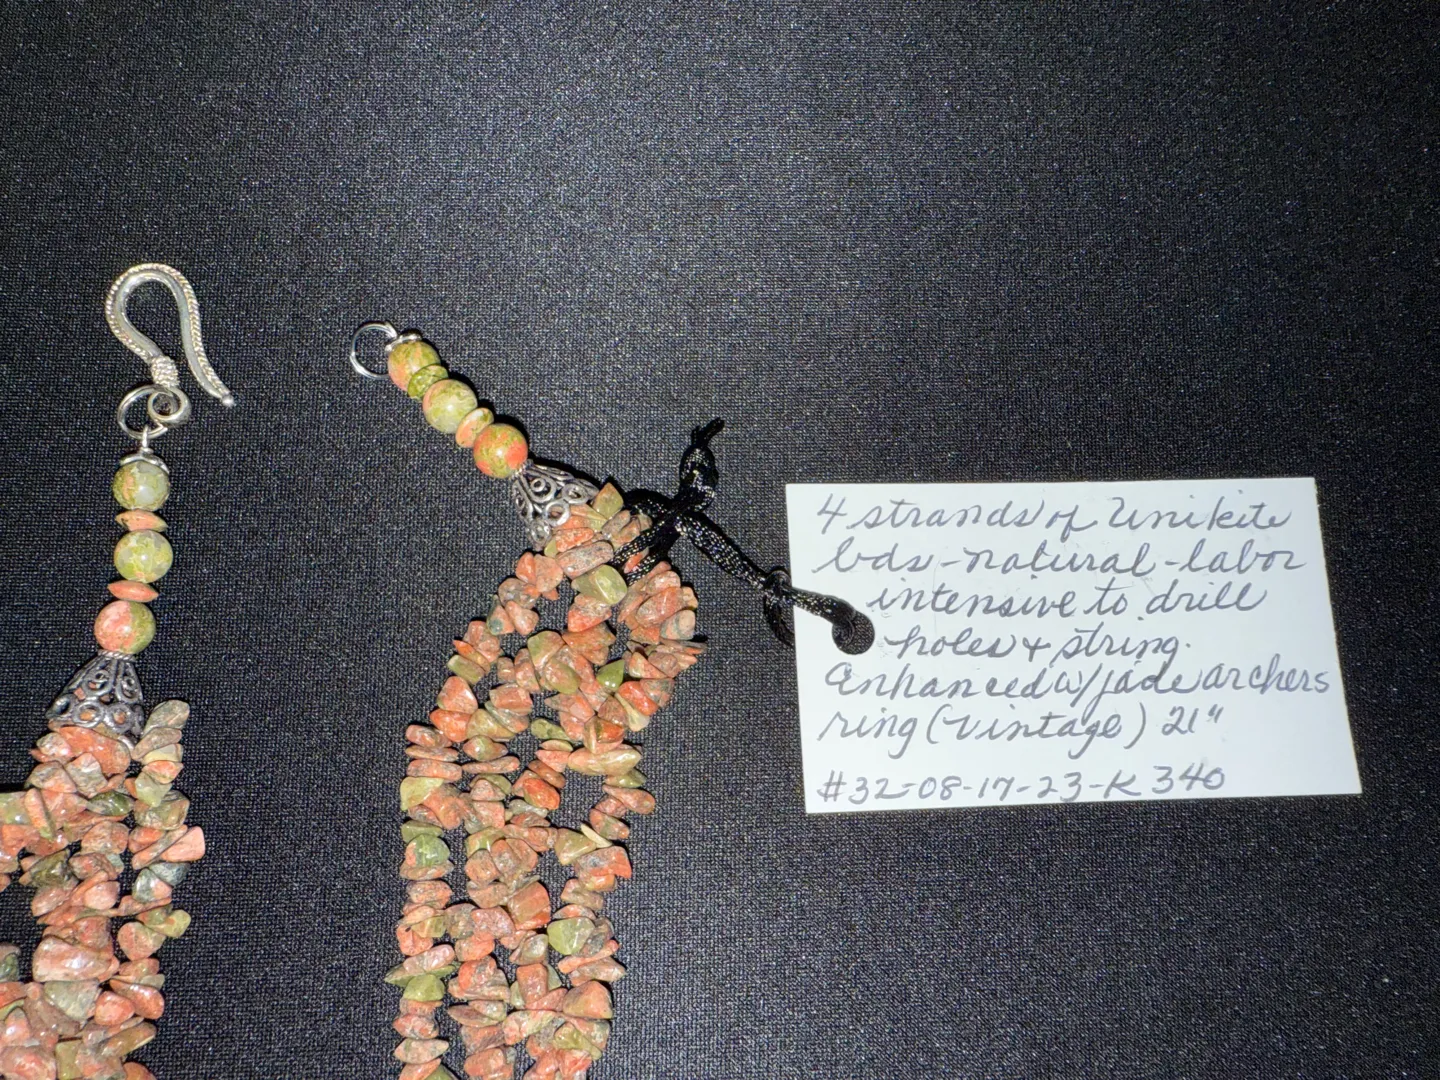 4 strands of Unikite
bds - natural - labor
intensive to drill
holes + string.
Enhanced w/ jade archers
ring (vintage) 21"
#32-08-17-23-K 340